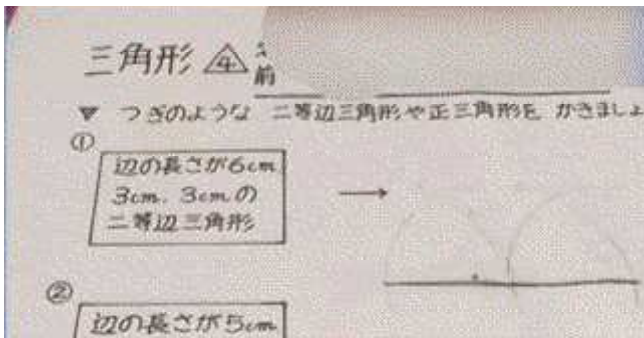 三角形 ④ 名前
▼ つぎのような 二等辺三角形や正三角形を かきましょ
①
辺の長さが6cm
3cm、3cmの
二等辺三角形
②
辺の長さが5cm